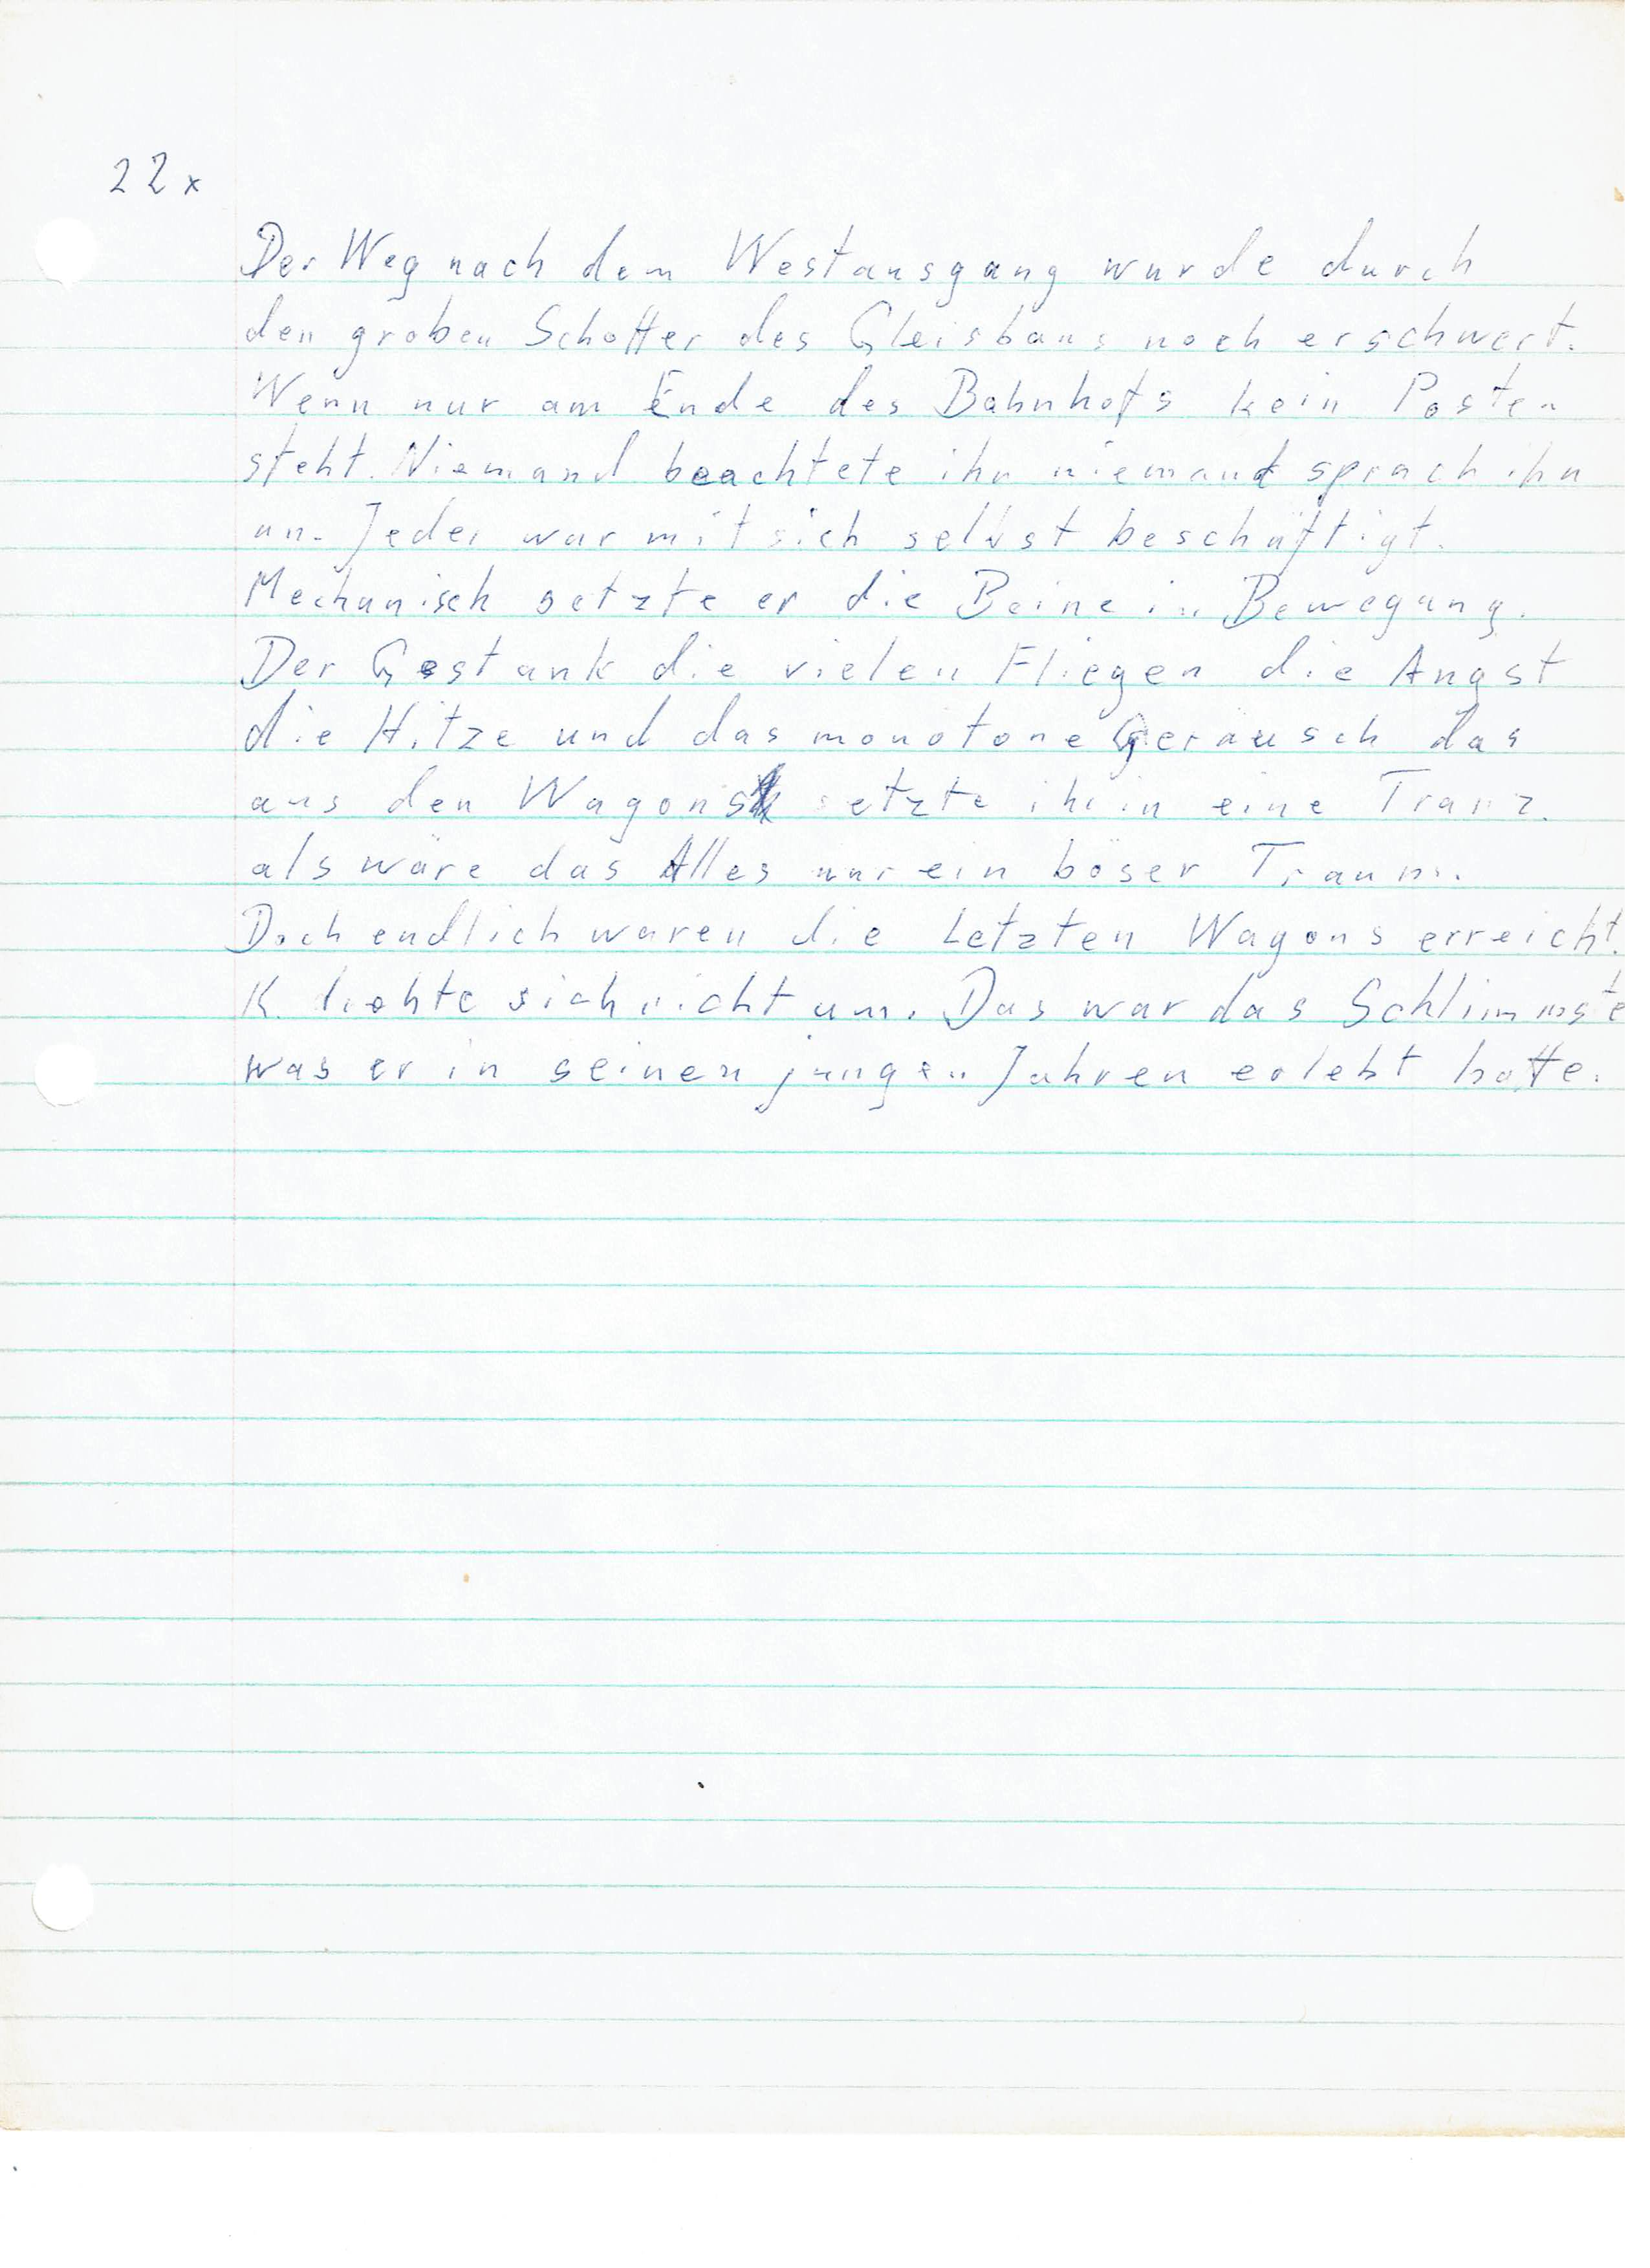 22x
Der Weg nach dem Westausgang wurde durch
den groben Schotter des Gleisbaus noch erschwert.
Wenn nur am Ende des Bahnhofs kein Posten
steht. Niemand beachtete ihn niemand sprach ihn
an. Jeder war mit sich selbst beschäftigt.
Mechanisch setzte er die Beine in Bewegung.
Der Gestank die vielen Fliegen die Angst
die Hitze und das monotone Geräusch das
aus den Wagons setzte ihn in eine Tranz.
als wäre das Alles nur ein böser Traum.
Doch endlich waren die Letzten Wagons erreicht.
K. drehte sich nicht um. Das war das Schlimmste
was er in seinen jungen Jahren erlebt hatte.